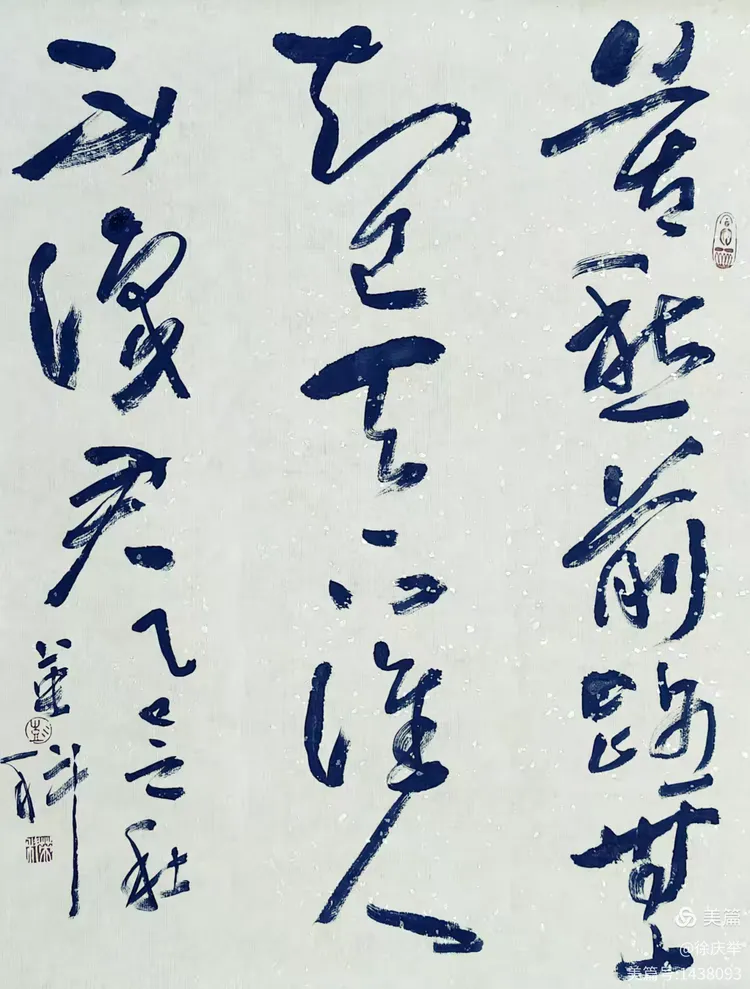 莫愁前路無
知己天下誰人
不識君
乙巳之秋
科
美篇
@徐庆举
美篇号:1438093